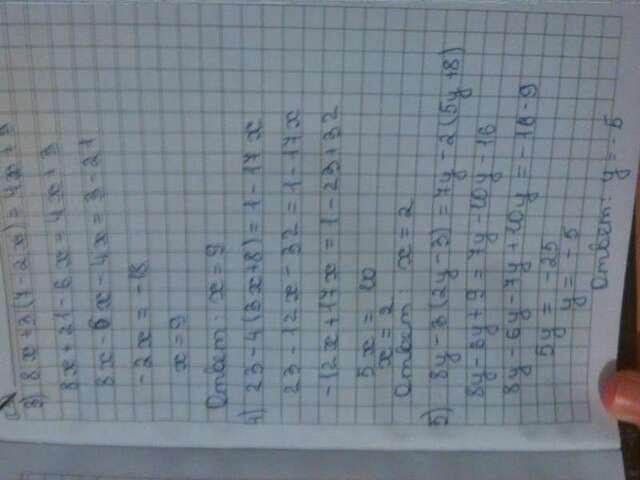 3) 8x+3(7-2x)=4x+3
8x+21-6x=4x+3
8x-6x-4x=3-21
-2x=-18
x=9
Ответ: x=9
4) 23-4(3x+8)=1-17x
23-12x-32=1-17x
-12x+17x=1-23+32
5x=10
x=2
Ответ: x=2
5) 8y-3(2y-3)=7y-2(5y+8)
8y-6y+9=7y-10y-16
8y-6y-7y+10y=-16-9
5y=-25
y=-5
Ответ: y=-5